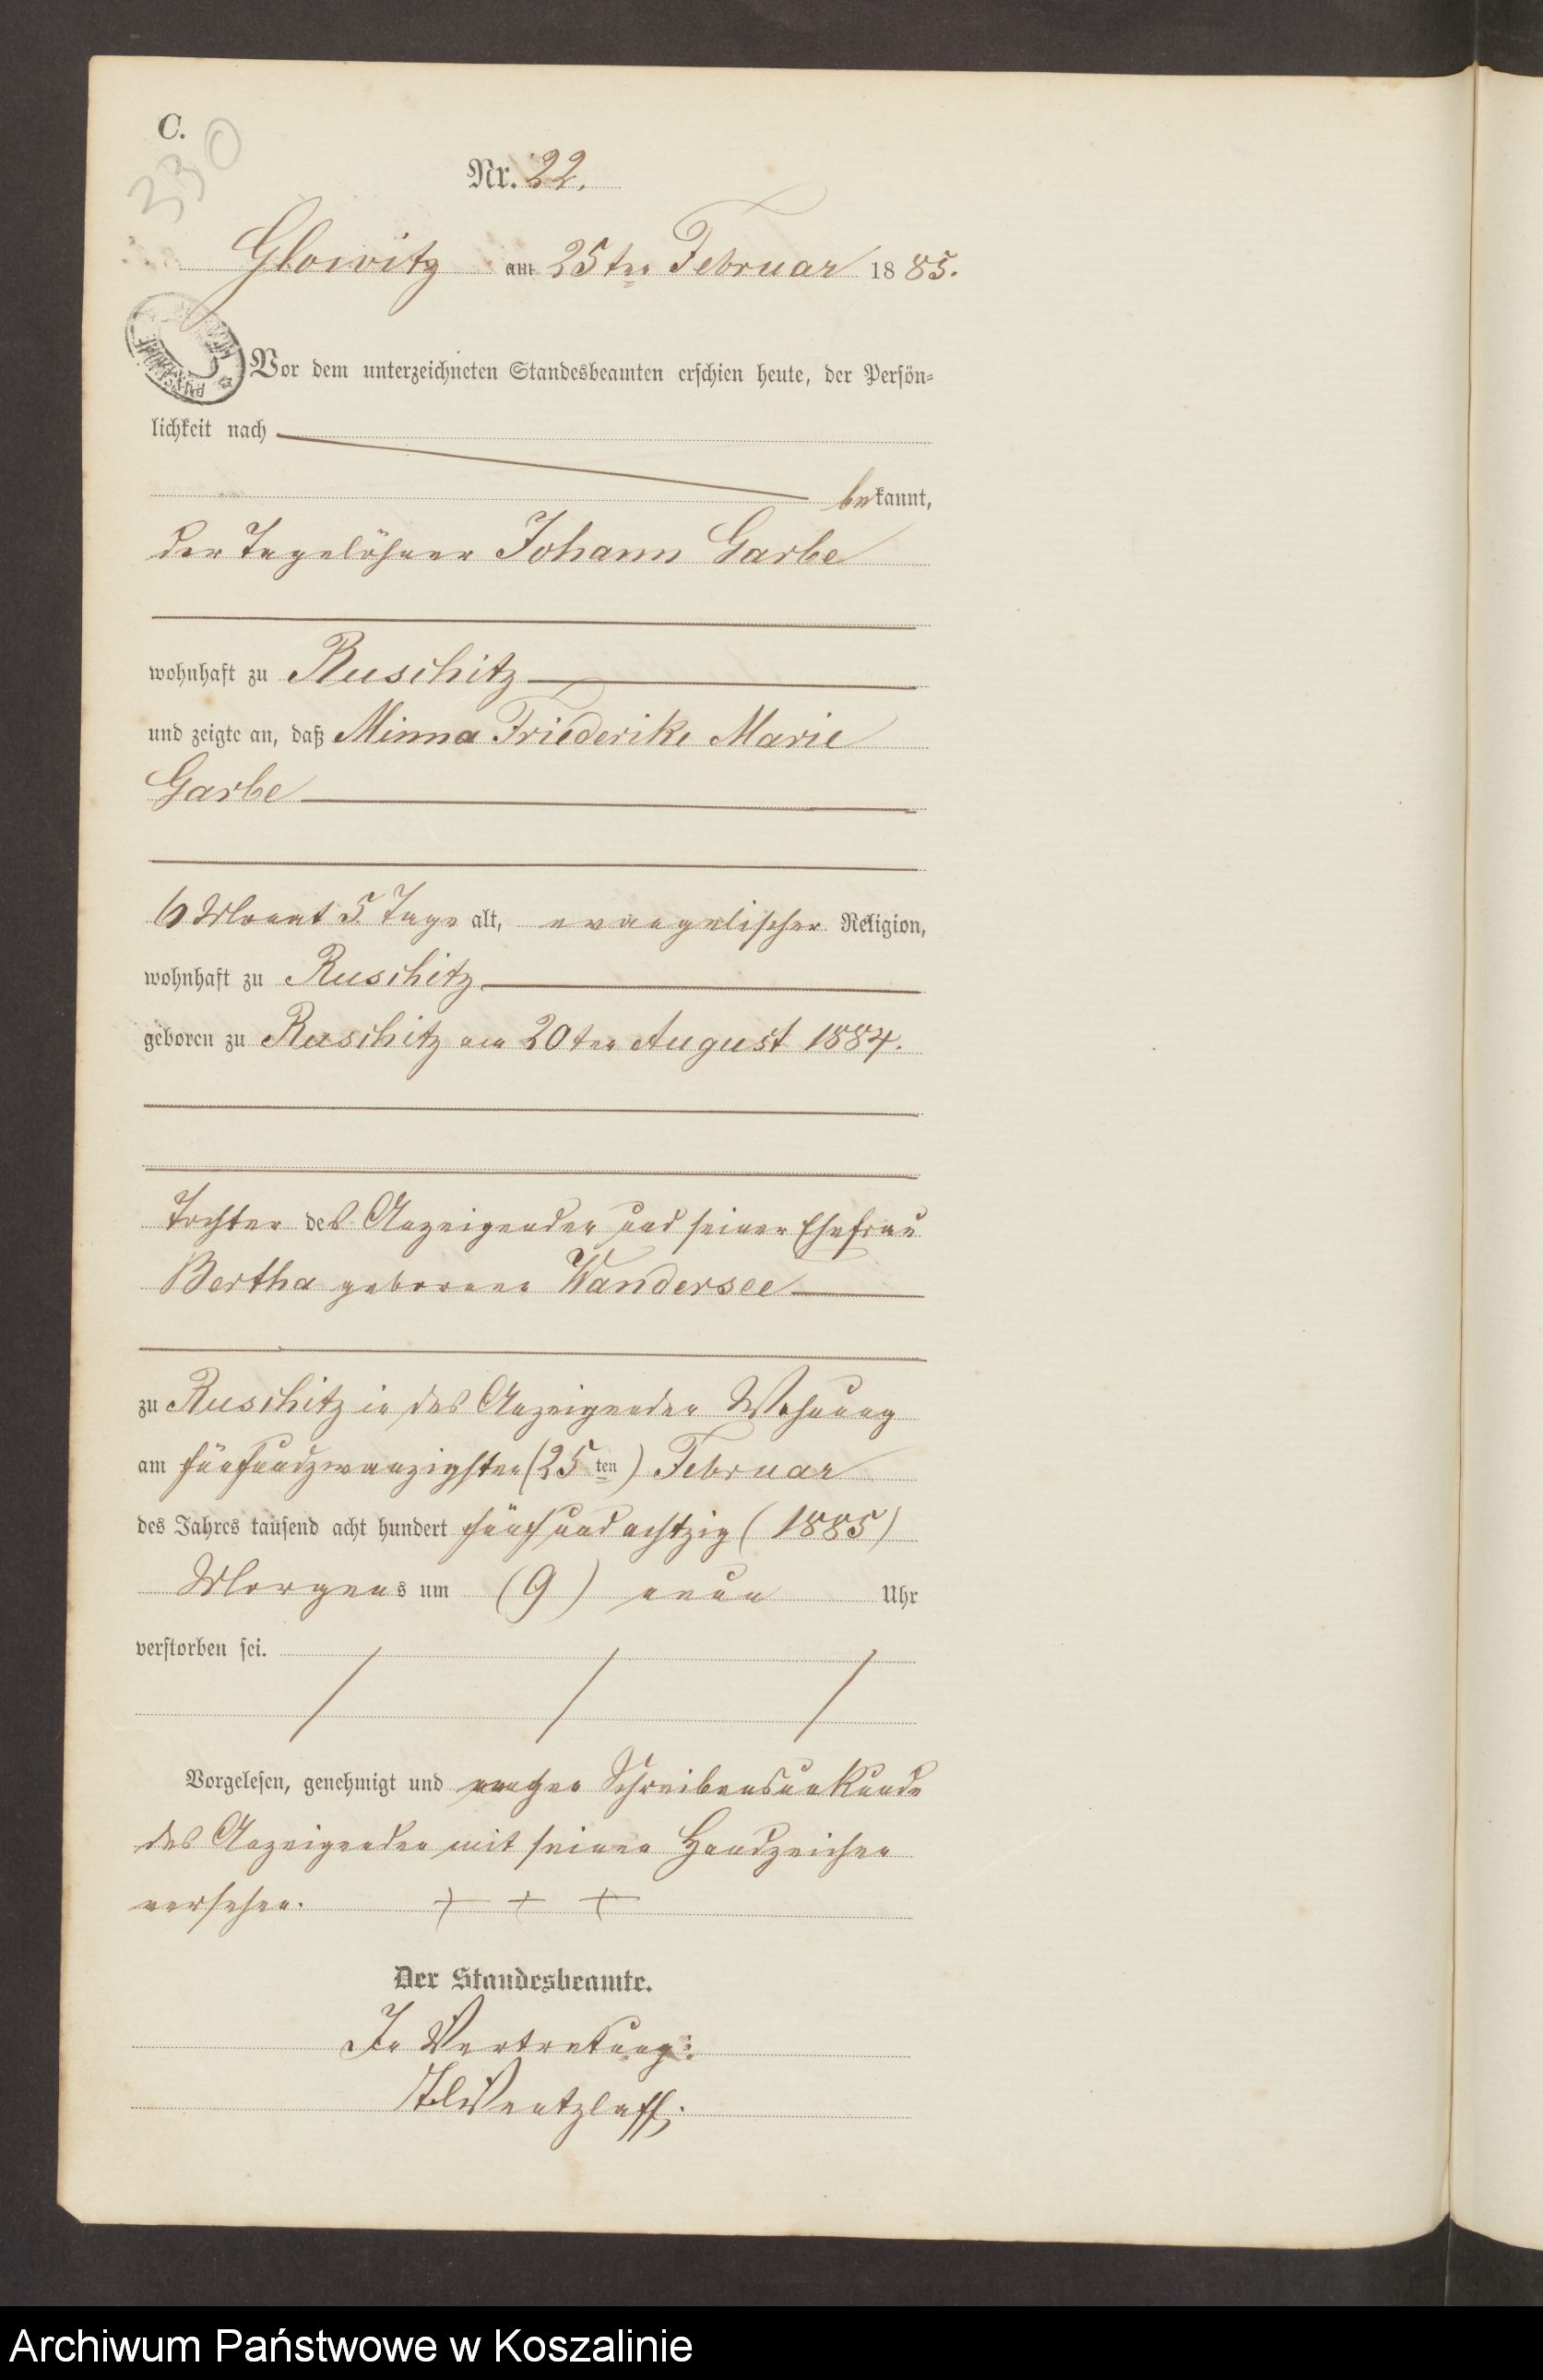 C.
330
Nr. 22.
Glowitz am 25ten Februar 1885.
Vor dem unterzeichneten Standesbeamten erschien heute, der Persön-
lichkeit nach
bekannt,
der Tagelöhner Johann Garbe
wohnhaft zu Ruschitz
und zeigte an, daß Minna Friederike Marie
Garbe
6 Monat 5 Tage alt, evangelischer Religion,
wohnhaft zu Ruschitz
geboren zu Ruschitz am 20ten August 1884.
Tochter des Anzeigenden und seiner Ehefrau
Bertha geborene Wandersee
zu Ruschitz in des Anzeigenden Wohnung
am fünfundzwanzigsten (25ten) Februar
des Jahres tausend acht hundert fünf und achtzig (1885)
Morgens um (9) neun Uhr
verstorben sei.
Vorgelesen, genehmigt und wegen Schreibensunkunde
des Anzeigenden mit seinen Handzeichen
versehen. + + +
Der Standesbeamte.
In Vertretung:
Wentzlaff.
Archiwum Państwowe w Koszalinie